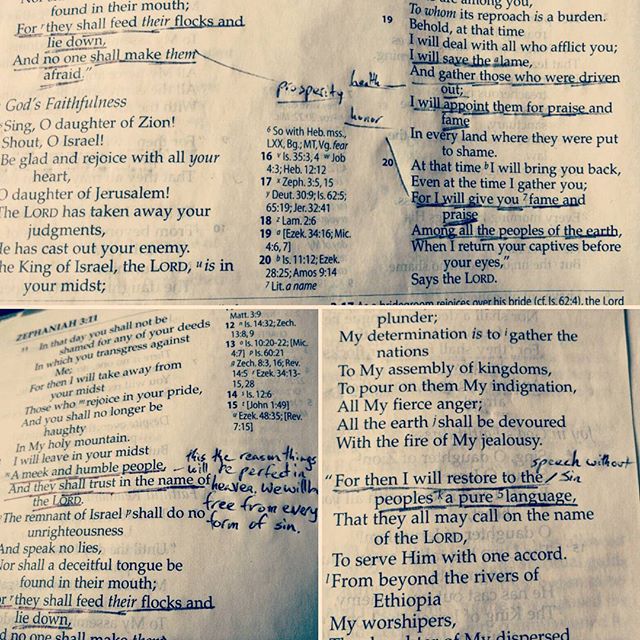 found in their mouth;
For ʳthey shall feed their flocks and
lie down,
And no one shall make them
afraid."
God's Faithfulness
Sing, O daughter of Zion!
Shout, O Israel!
Be glad and rejoice with all your
heart,
O daughter of Jerusalem!
The LORD has taken away your
judgments,
He has cast out your enemy.
The King of Israel, the LORD, ᵘis in
your midst;
prosperity
health
honor
⁶ So with Heb. mss.,
LXX, Bg.; MT, Vg. fear
16 ᵛ Is. 35:3, 4 ʷ Job
4:3; Heb. 12:12
17 ˣ Zeph. 3:5, 15
ʸ Deut. 30:9; Is. 62:5;
65:19; Jer. 32:41
18 ᶻ Lam. 2:6
19 ᵃ [Ezek. 34:16; Mic.
4:6, 7]
20 ᵇ Is. 11:12; Ezek.
28:25; Amos 9:14
⁷ Lit. a name
among you,
To whom its reproach is a burden.
19 Behold, at that time
I will deal with all who afflict you;
I will save the lame,
And gather those who were driven
out;
I will appoint them for praise and
fame
In every land where they were put
to shame.
20 At that time ᵇI will bring you back,
Even at the time I gather you;
For I will give you ⁷fame and
praise
Among all the peoples of the earth,
When I return your captives before
your eyes,"
Says the LORD.
bridegroom rejoices over his bride (cf. Is. 62:4). the Lord
ZEPHANIAH 3:11
11 In that day you shall not be
shamed for any of your deeds
In which you transgress against
Me;
For then I will take away from
your midst
Those who ᵐrejoice in your pride,
And you shall no longer be
haughty
In My holy mountain.
I will leave in your midst
ⁿA meek and humble people,
And they shall trust in the name of
the LORD.
The remnant of Israel ᵖshall do no
unrighteousness
And speak no lies,
Nor shall a deceitful tongue be
found in their mouth;
For ʳthey shall feed their flocks and
lie down,
And no one shall make them
Matt. 3:9
12 ⁿ Is. 14:32; Zech.
13:8, 9
13 ᵒ Is. 10:20-22; [Mic.
4:7] ᵖ Is. 60:21
ᑫ Zech. 8:3, 16; Rev.
14:5 ʳ Ezek. 34:13-
15, 28
14 ˢ Is. 12:6
15 ᵗ [John 1:49]
ᵘ Ezek. 48:35; [Rev.
7:15]
this the reason things
will be perfect in
heaven. We will be
free from every
form of sin.
plunder;
My determination is to ⁱgather the
nations
To My assembly of kingdoms,
To pour on them My indignation,
All My fierce anger;
All the earth ʲshall be devoured
With the fire of My jealousy.
speech without
sin
"For then I will restore to the
peoples ᵏa pure ⁵language,
That they all may call on the name
of the LORD,
To serve Him with one accord.
ˡFrom beyond the rivers of
Ethiopia
My worshipers,
The daughter of My dispersed